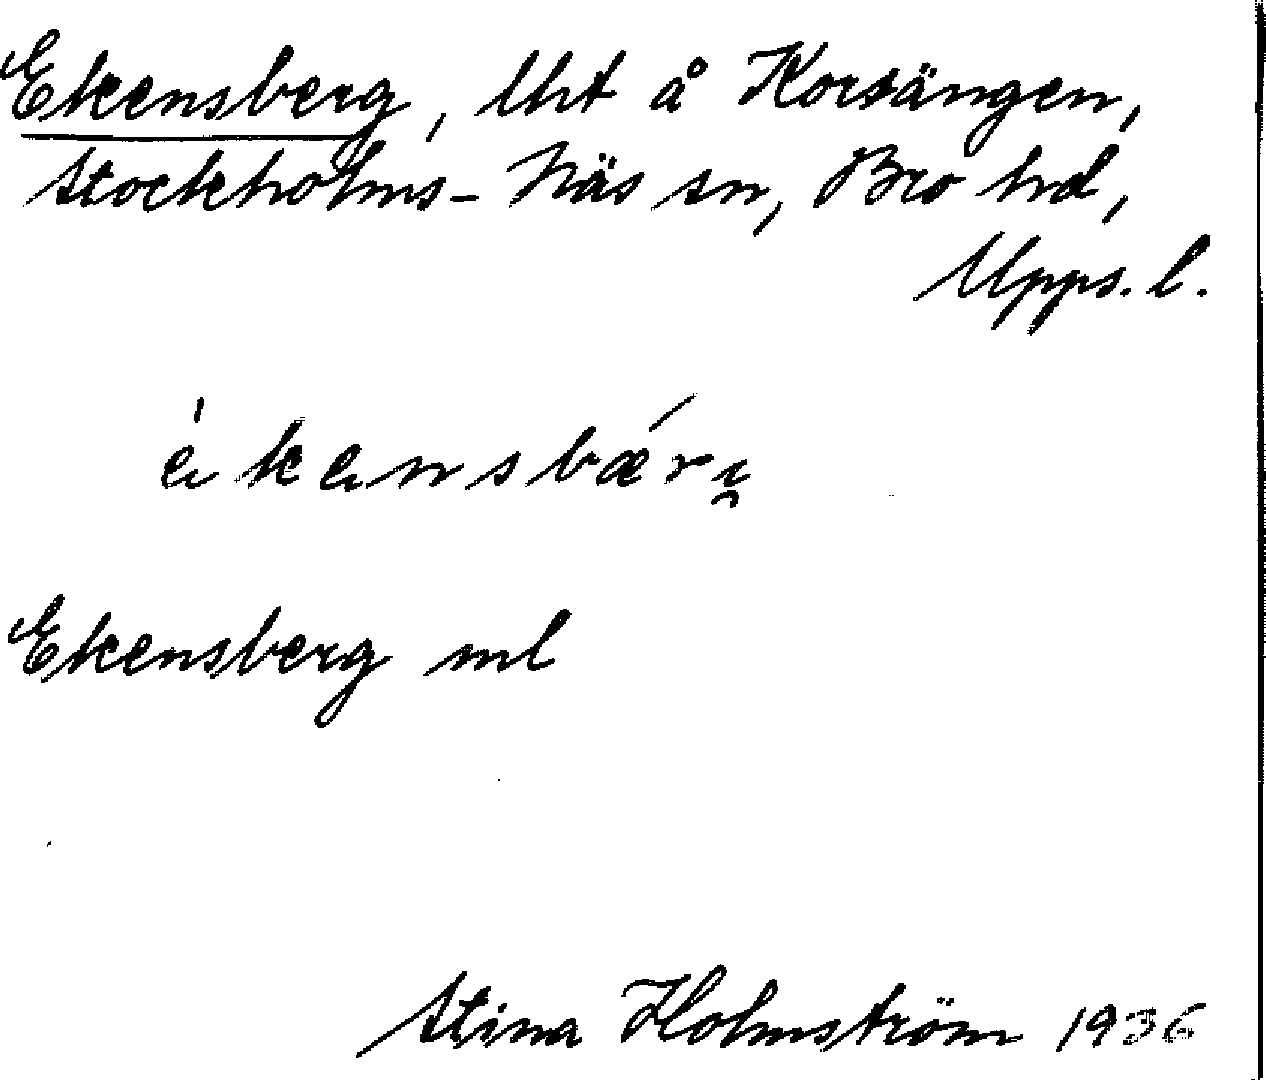 Ekensberg, lht å Korsängen,
Stockholms-Näs sn, Bro hd,
Upps. l.
èkensbǽri̯
Ekensberg ml
Stina Holmström 1936